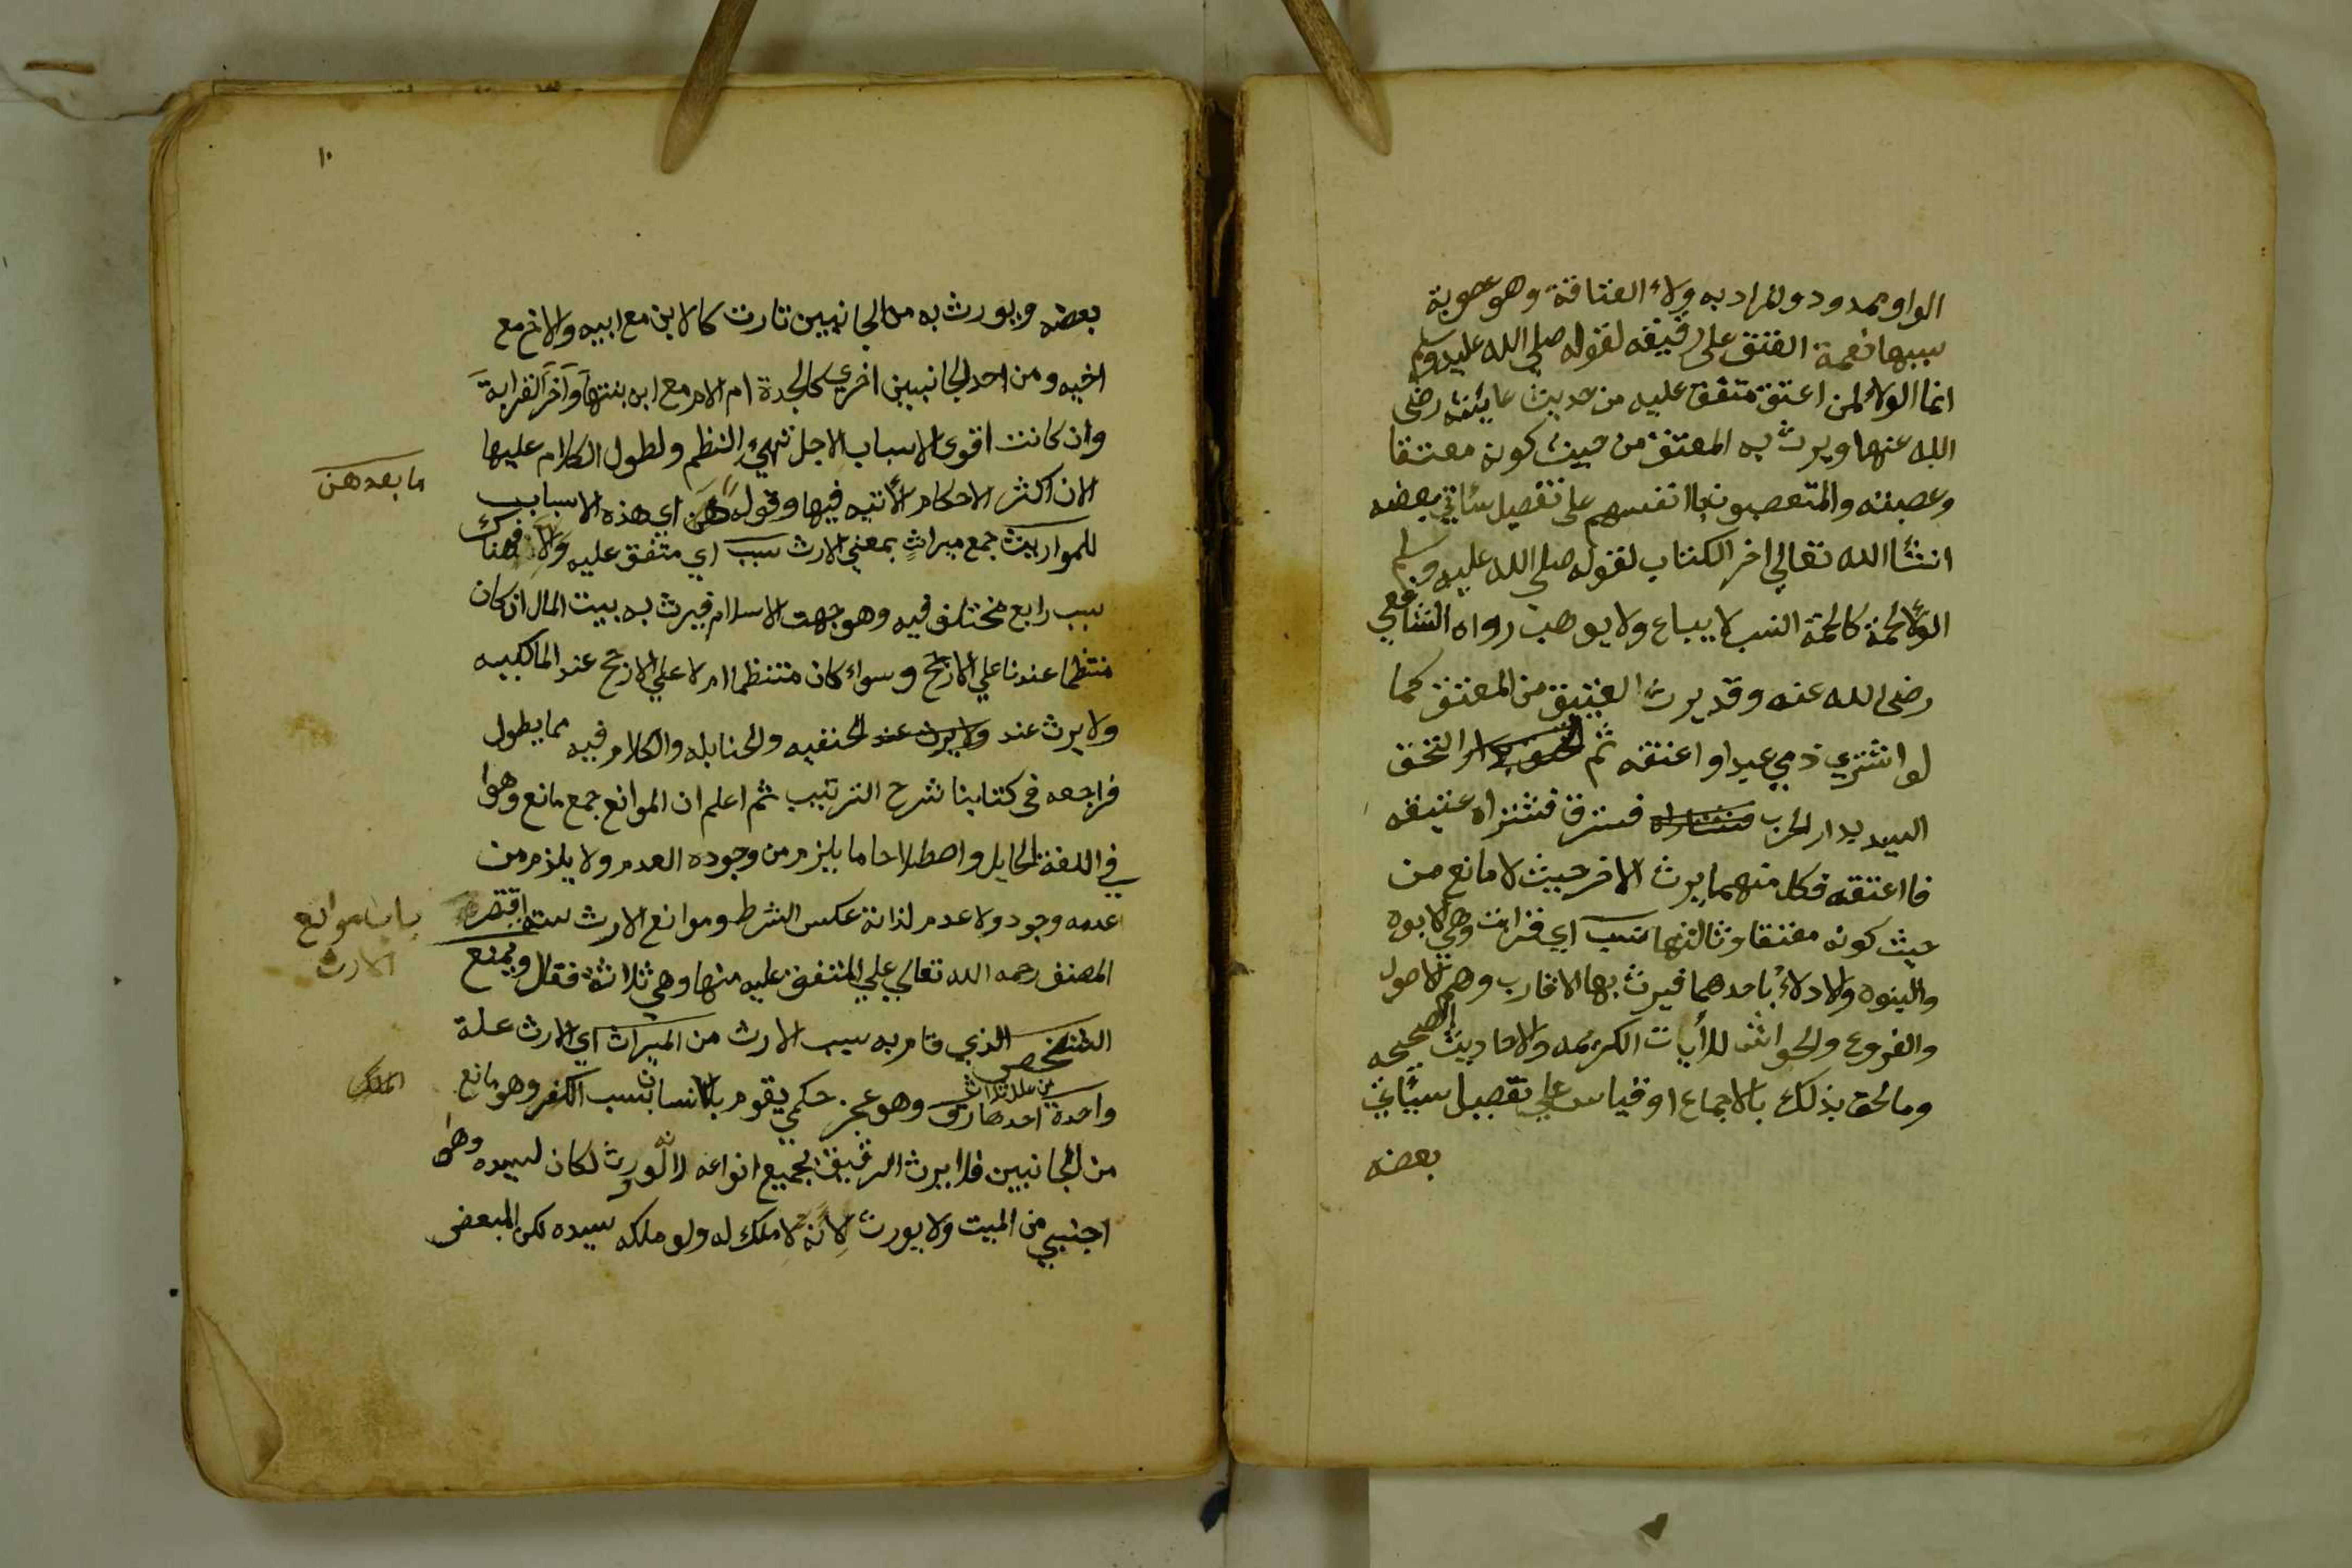 الواو ممدود والمراد به ولاء العتاقة وهو عصوبة
سببها نعمة العتق على رقيقه لقوله صلى الله عليه وسلم
انما الولاء لمن اعتق متفق عليه من حديث عايشه رضى
الله عنها ويرث به المعتق من حيث كونه معتقا
وعصبته والمتعصبون بانفسهم على تفصيل سئاتي بعضه
انشا الله تعالي اخر الكتاب لقوله صلى الله عليه وسلم
الولا لحمة كالحمة النسب لا يباع ولا يوهب رواه الشافعي
رضى الله عنه وقد يرث العتيق من المعتق كما
لو اشتري ذمي عبدا و اعتقه ثم التحق
السيد بدار الحرب فسترق فشتراه عتيقه
فااعتقه فكل منهما يرث الاخر حيث لا مانع من
حيث كونه معتقا وثالثها نسب اي قرابت وهي الابوه
والبنوه والادلاء باحدهما فيرث بها الاقارب وهم الاصول
والفروع والحواشى للأيات الكريمه والاحاديث الصحيحه
ومالحق بذلك بالاجماع او قياس علي تفصيل سيئاتي
بعضه
١٠
بعضه ويورث به من الجانبين تارت كالابن مع ابيه والاخ مع
اخيه ومن احد الجانبين اخري كالجدة ام الام مع ابن بنتها وآخر القرابة
وان كانت اقوى الاسباب لاجل تهيء النظم ولطول الكلام عليها
لان اكثر الاحكام الأتيه فيها وقوله هن اي هذه الاسباب
ما بعدهن
للمواريث جمع ميراث بمعني الارث سبب اي متفق عليه والا فهناك
سبب رابع مختلف فيه وهو جهت الاسلام فيرث به بيت المال ان كان
منتظما عندنا علي الارجح وسواء كان منتظما ام لا علي الارجح عند المالكيه
ولا يرث عند ولا يرث عند الحنفيه والحنابله والكلام فيه مما يطول
فراجعه في كتابنا شرح الترتيب ثم اعلم ان الموانع جمع مانع وهوا
في اللغة الحايل واصطلاحا ما يلزم من وجوده العدم ولا يلزم من
عدمه وجود ولا عدم لذاته عكس الشرط وموانع الارث سته اقتصر
باب موانع
الارث
المصنف رحمه الله تعالي علي المتفق عليه منها وهي ثلاثة فقال ويمنع
الشخص الذي قام به سبب الارث من الميراث اي الارث علة
واحدة من علل ثلاث احدها رق وهو عجز حكمي يقوم بالانسان بسبب الكفر وهو مانع
من الجانبين فلا يرث الرقيق بجميع انواعه لانه لو ورث لكان لسيده وهو
اجنبي من الميت ولا يورث لانه لا ملك له ولو ملكه سيده لكن المبعض